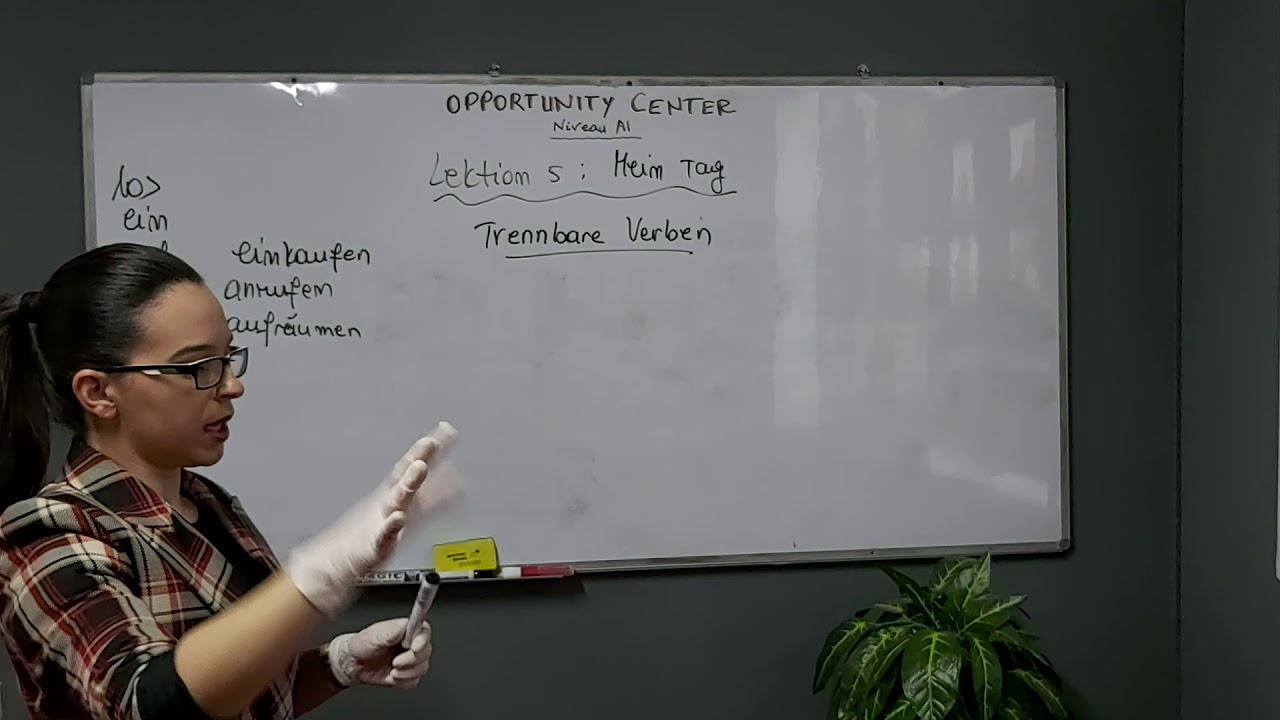 OPPORTUNITY CENTER
Niveau A1
Lektion 5 : Mein Tag
Trennbare Verben
ein
einkaufen
anrufen
aufräumen